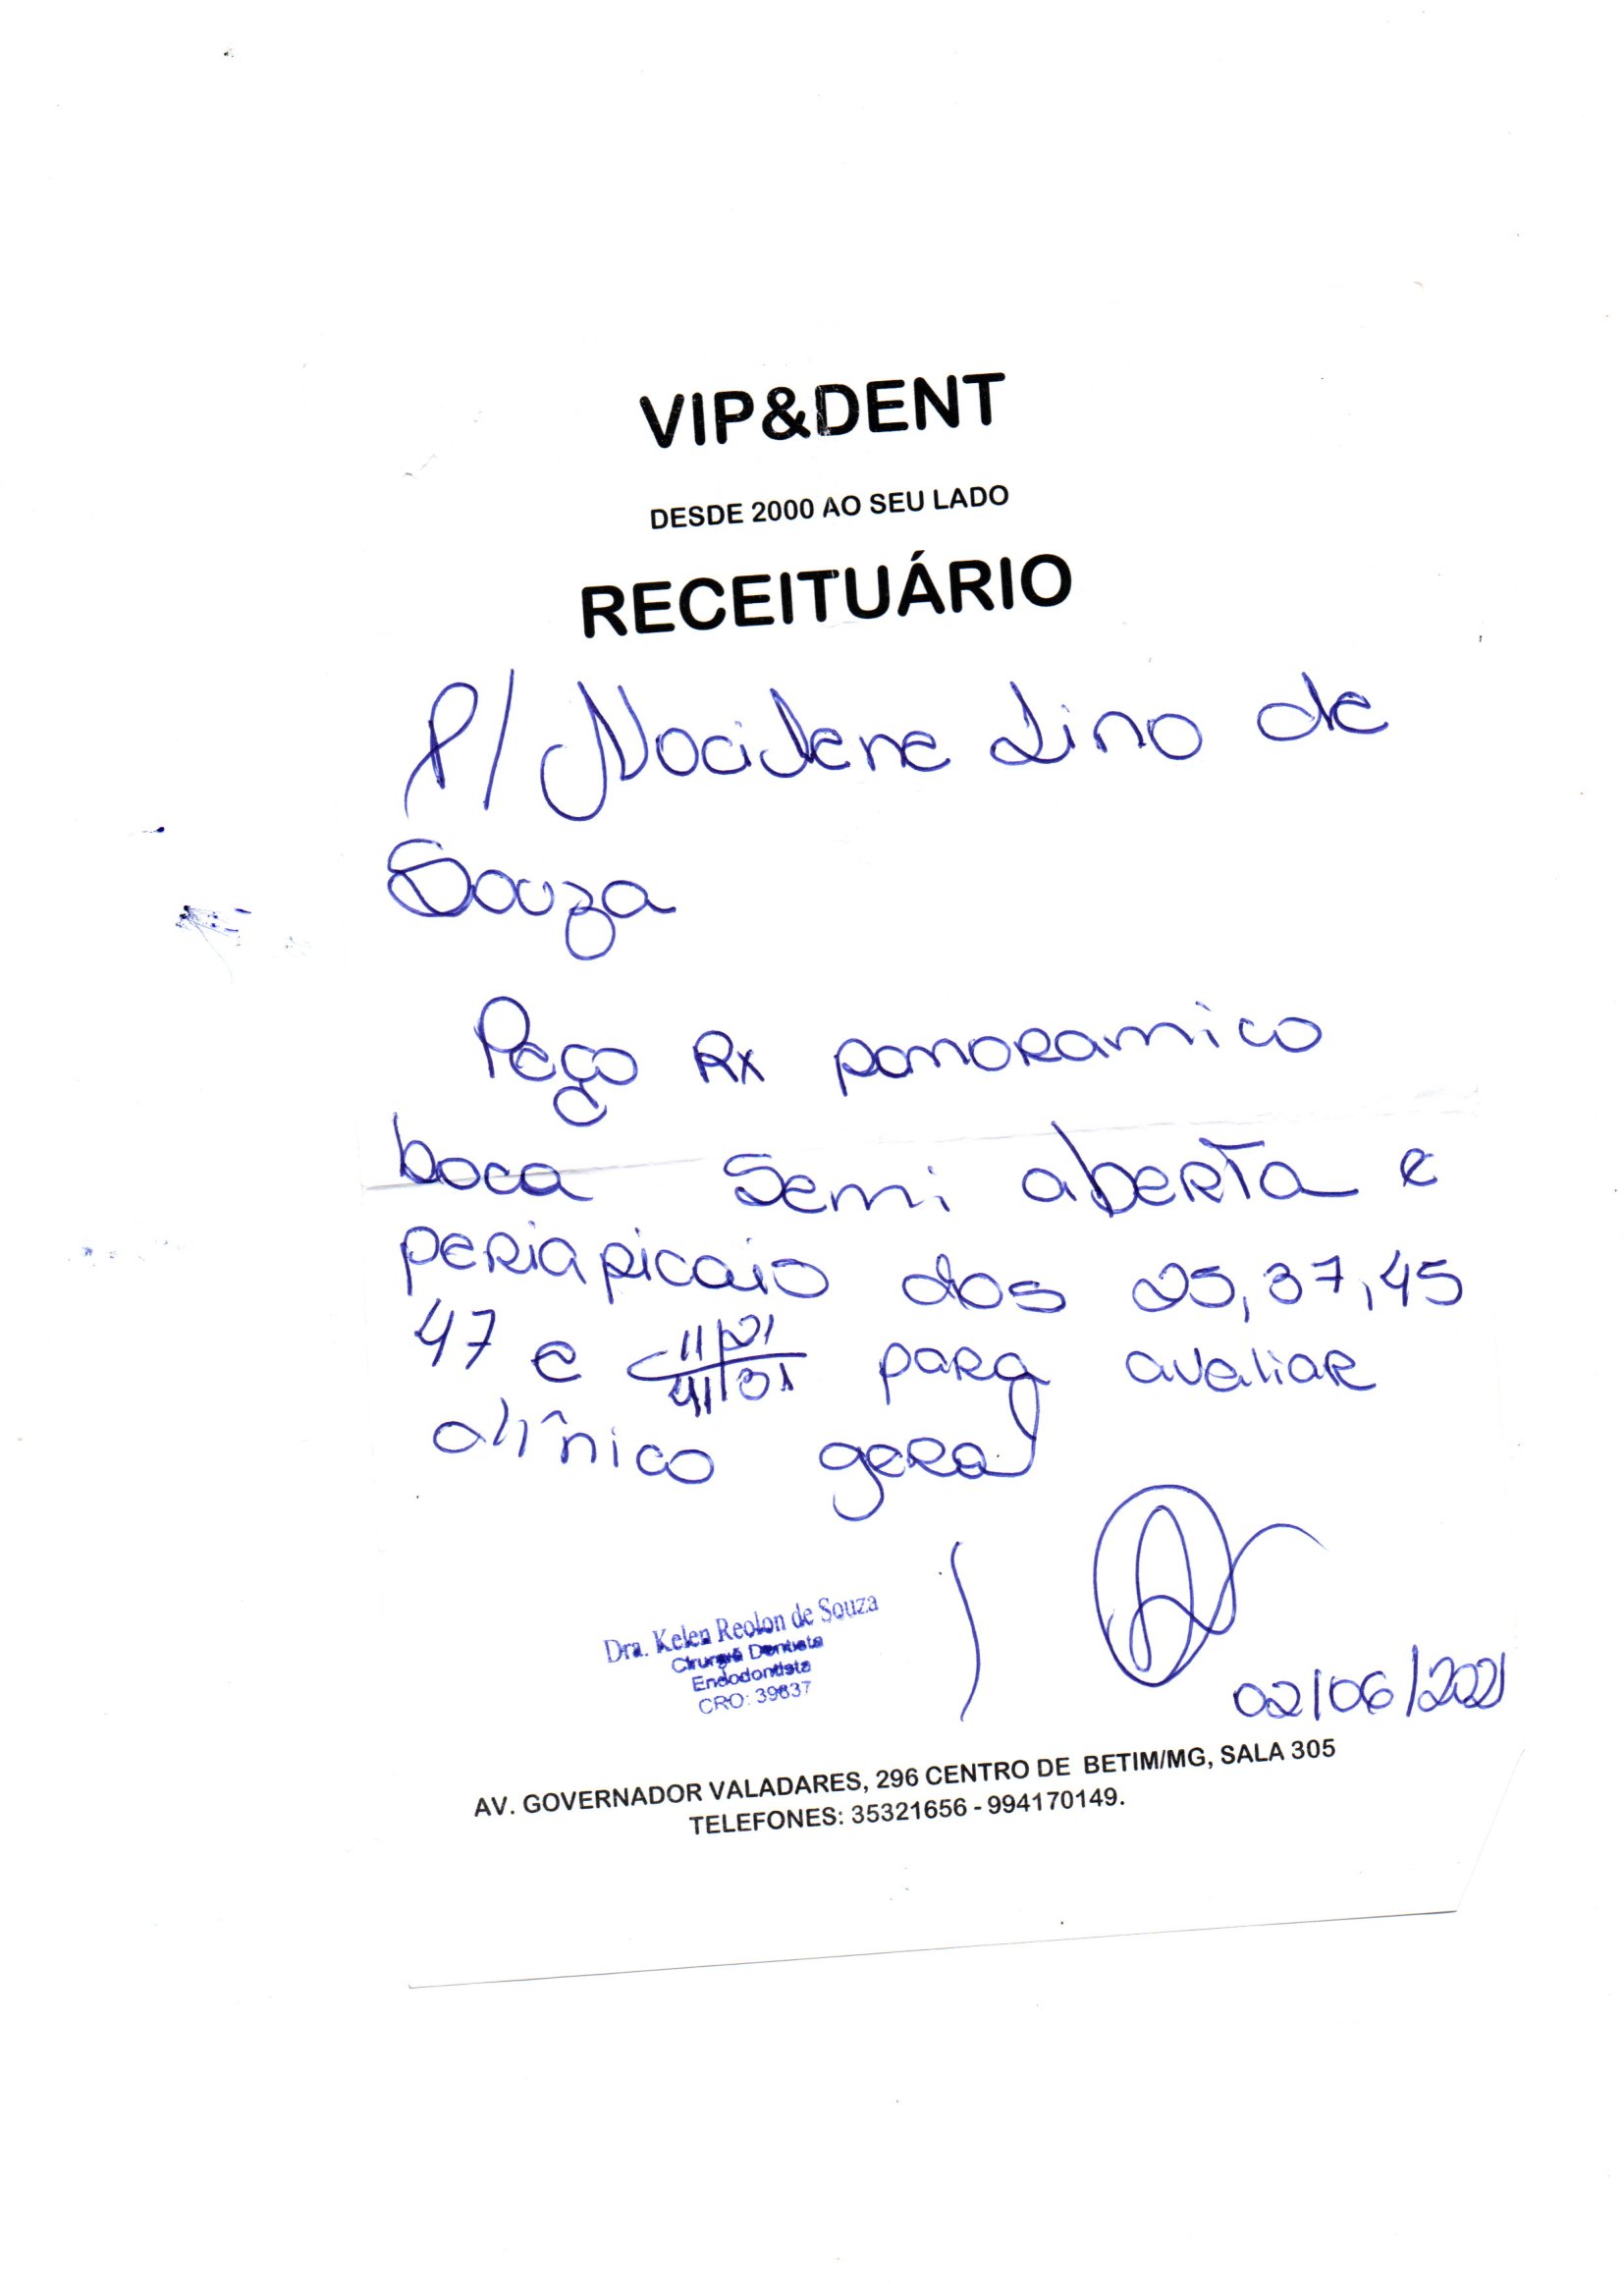 VIP&DENT
DESDE 2000 AO SEU LADO
RECEITUÁRIO
P/ Nocilene Lino de
Souza
Peço Rx panoramico
boca semi aberta e
periapicais dos 25, 37, 45
47 e 11|21
41|31 para avaliar
clínico geral
Dra. Kelen Reolon de Souza
Cirurgiã Dentista
Endodontista
CRO: 39837
02/06/2021
AV. GOVERNADOR VALADARES, 296 CENTRO DE BETIM/MG, SALA 305
TELEFONES: 35321656 - 994170149.